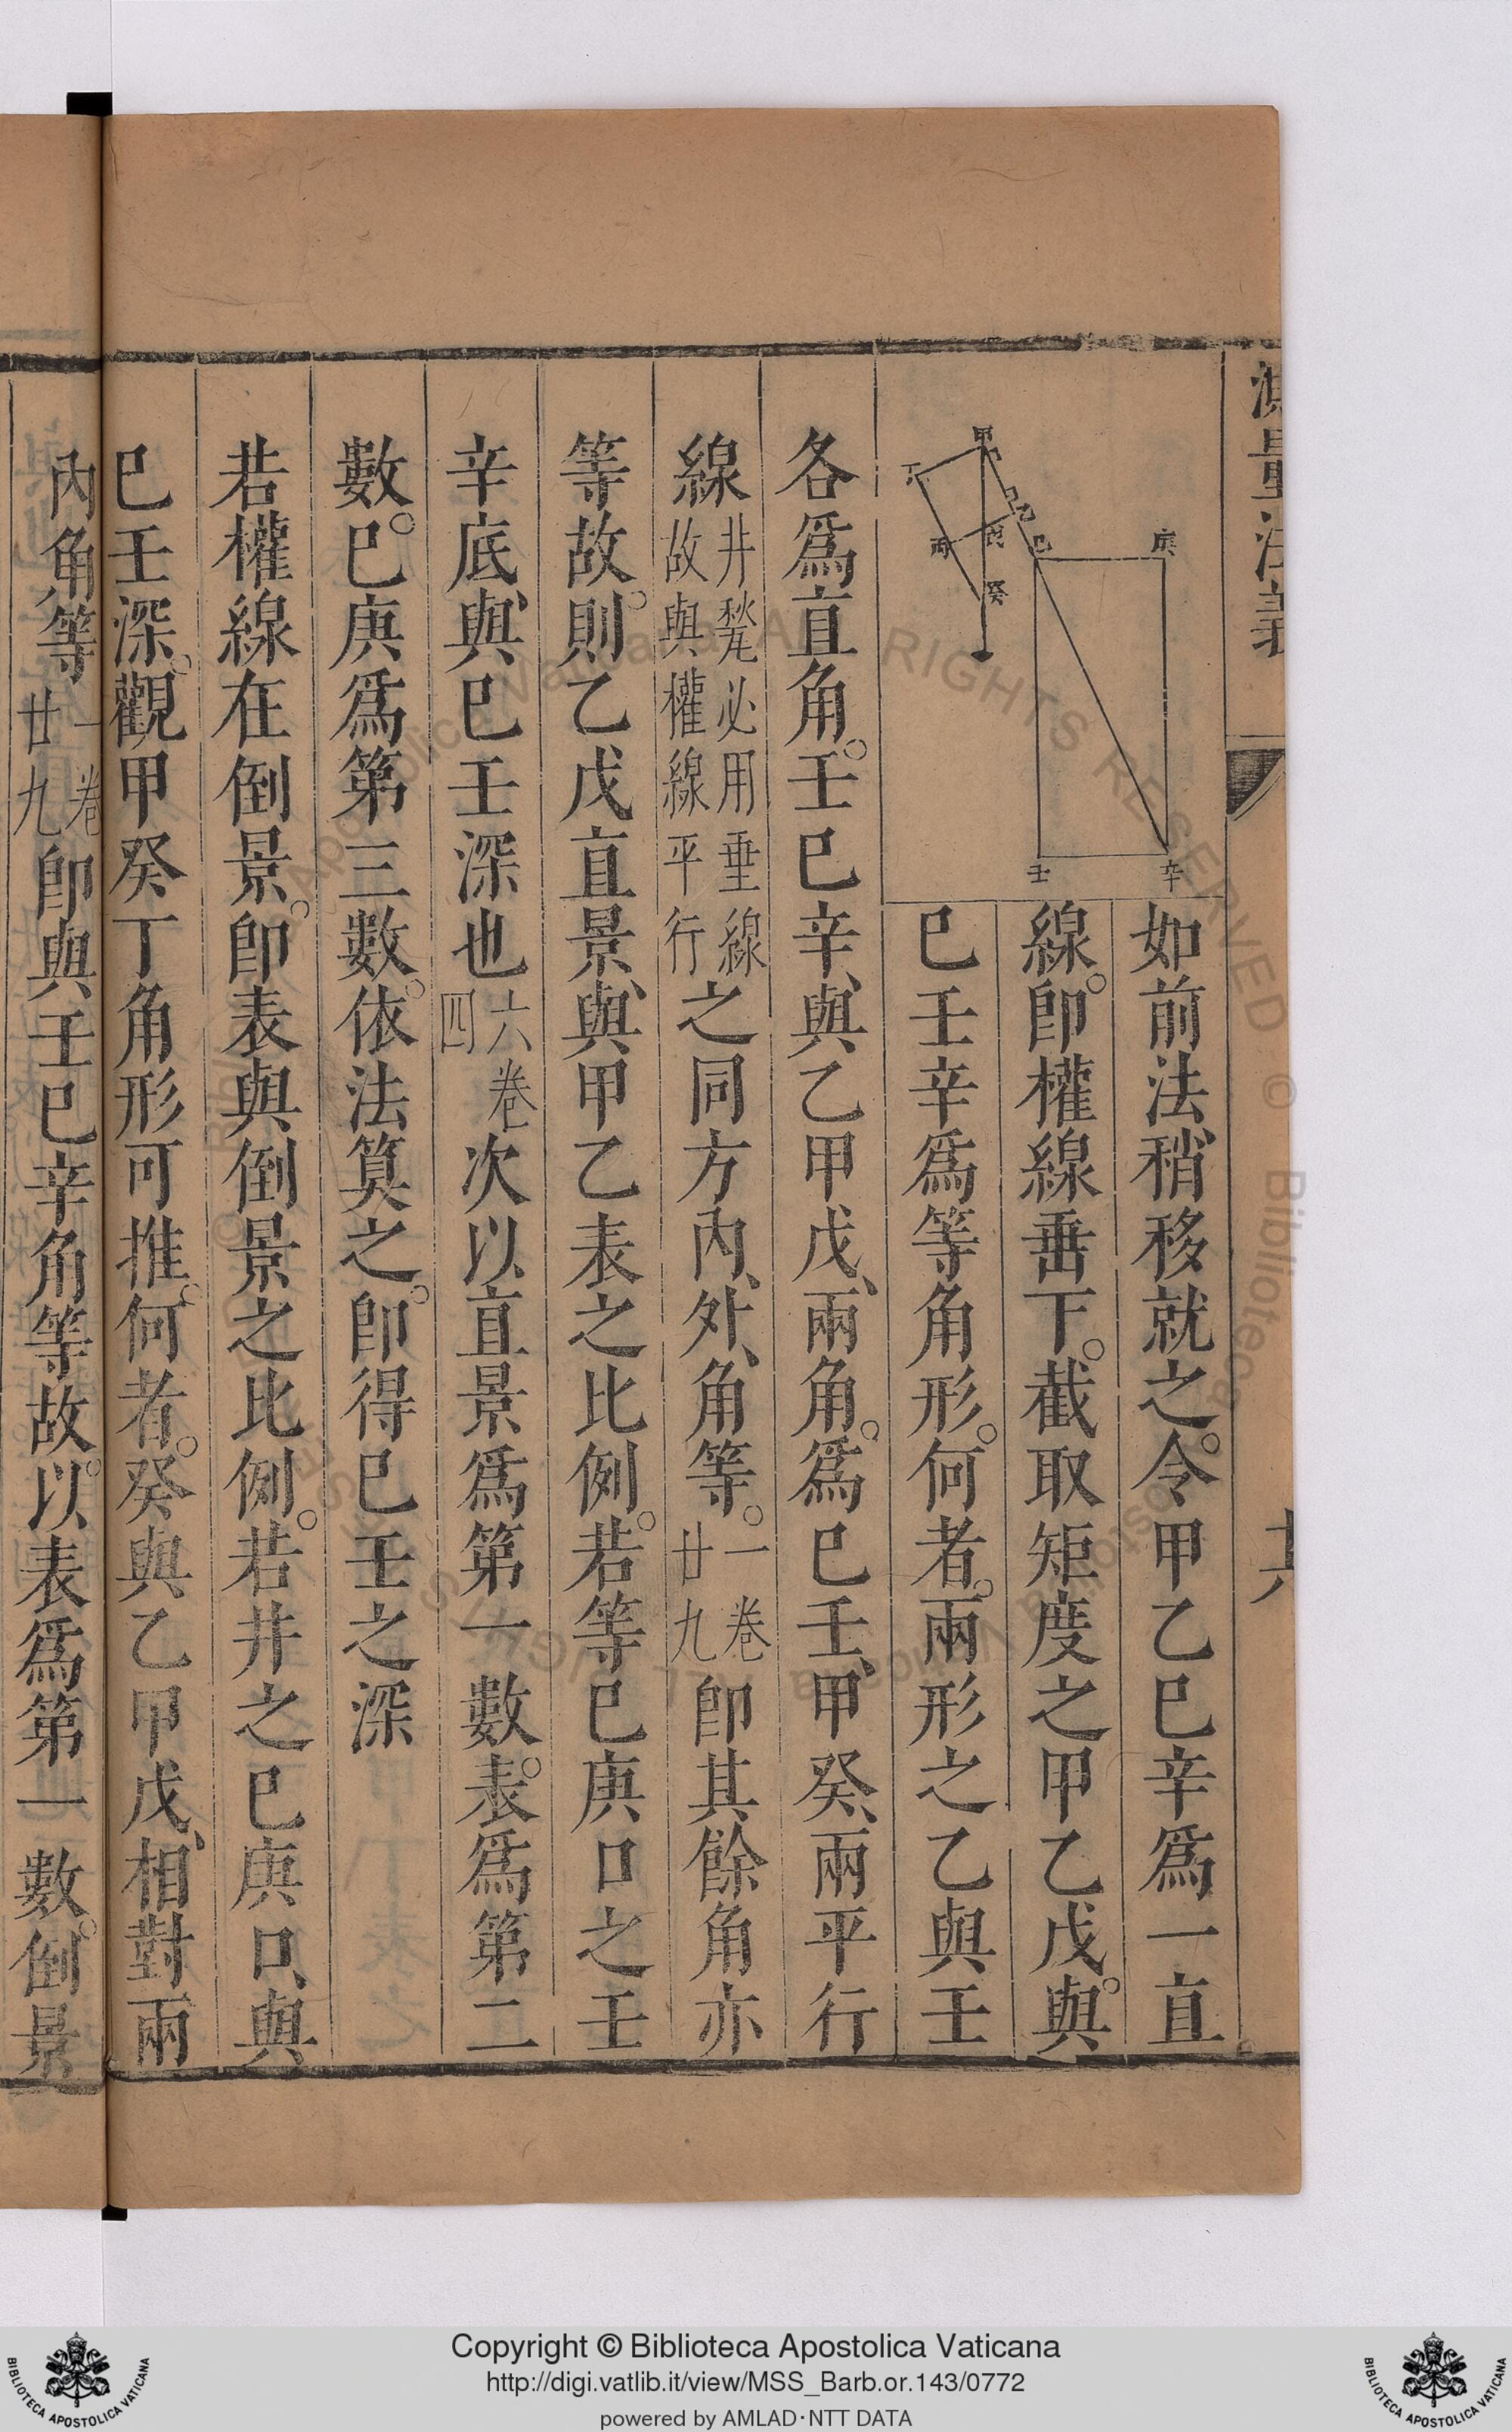 測量法義
十六
甲
丁
乙
丙
戊
己
癸
庚
壬
辛
如前法、稍移就之。令甲乙巳辛爲一直
線。卽權線垂下。截取矩度之甲乙戊。與
巳壬辛爲等角形。何者。兩形之乙與壬
各爲直角。壬巳辛、與乙甲戊、兩角。爲巳壬、甲癸、兩平行
線井甃必用垂線故與權線平行之同方內、外、角等。一卷廿九卽其餘角亦
等故。則乙戊直景、與甲乙表之比例。若等巳庚口之壬
辛底、與巳壬深也六卷四次以直景爲第一數。表爲第二
數。巳庚爲第三數。依法算之。卽得巳壬之深
若權線在倒景。卽表與倒景之比例。若井之巳庚口、與
巳壬深。觀甲癸丁角形可推。何者。癸與乙甲戊、相對兩
內角等一卷廿九卽與壬巳辛角等故。以表爲第一數。倒景
Copyright © Biblioteca Apostolica Vaticana
http://digi.vatlib.it/view/MSS_Barb.or.143/0772
powered by AMLAD·NTT DATA
BIBLIOTECA APOSTOLICA VATICANA
BIBLIOTECA APOSTOLICA VATICANA